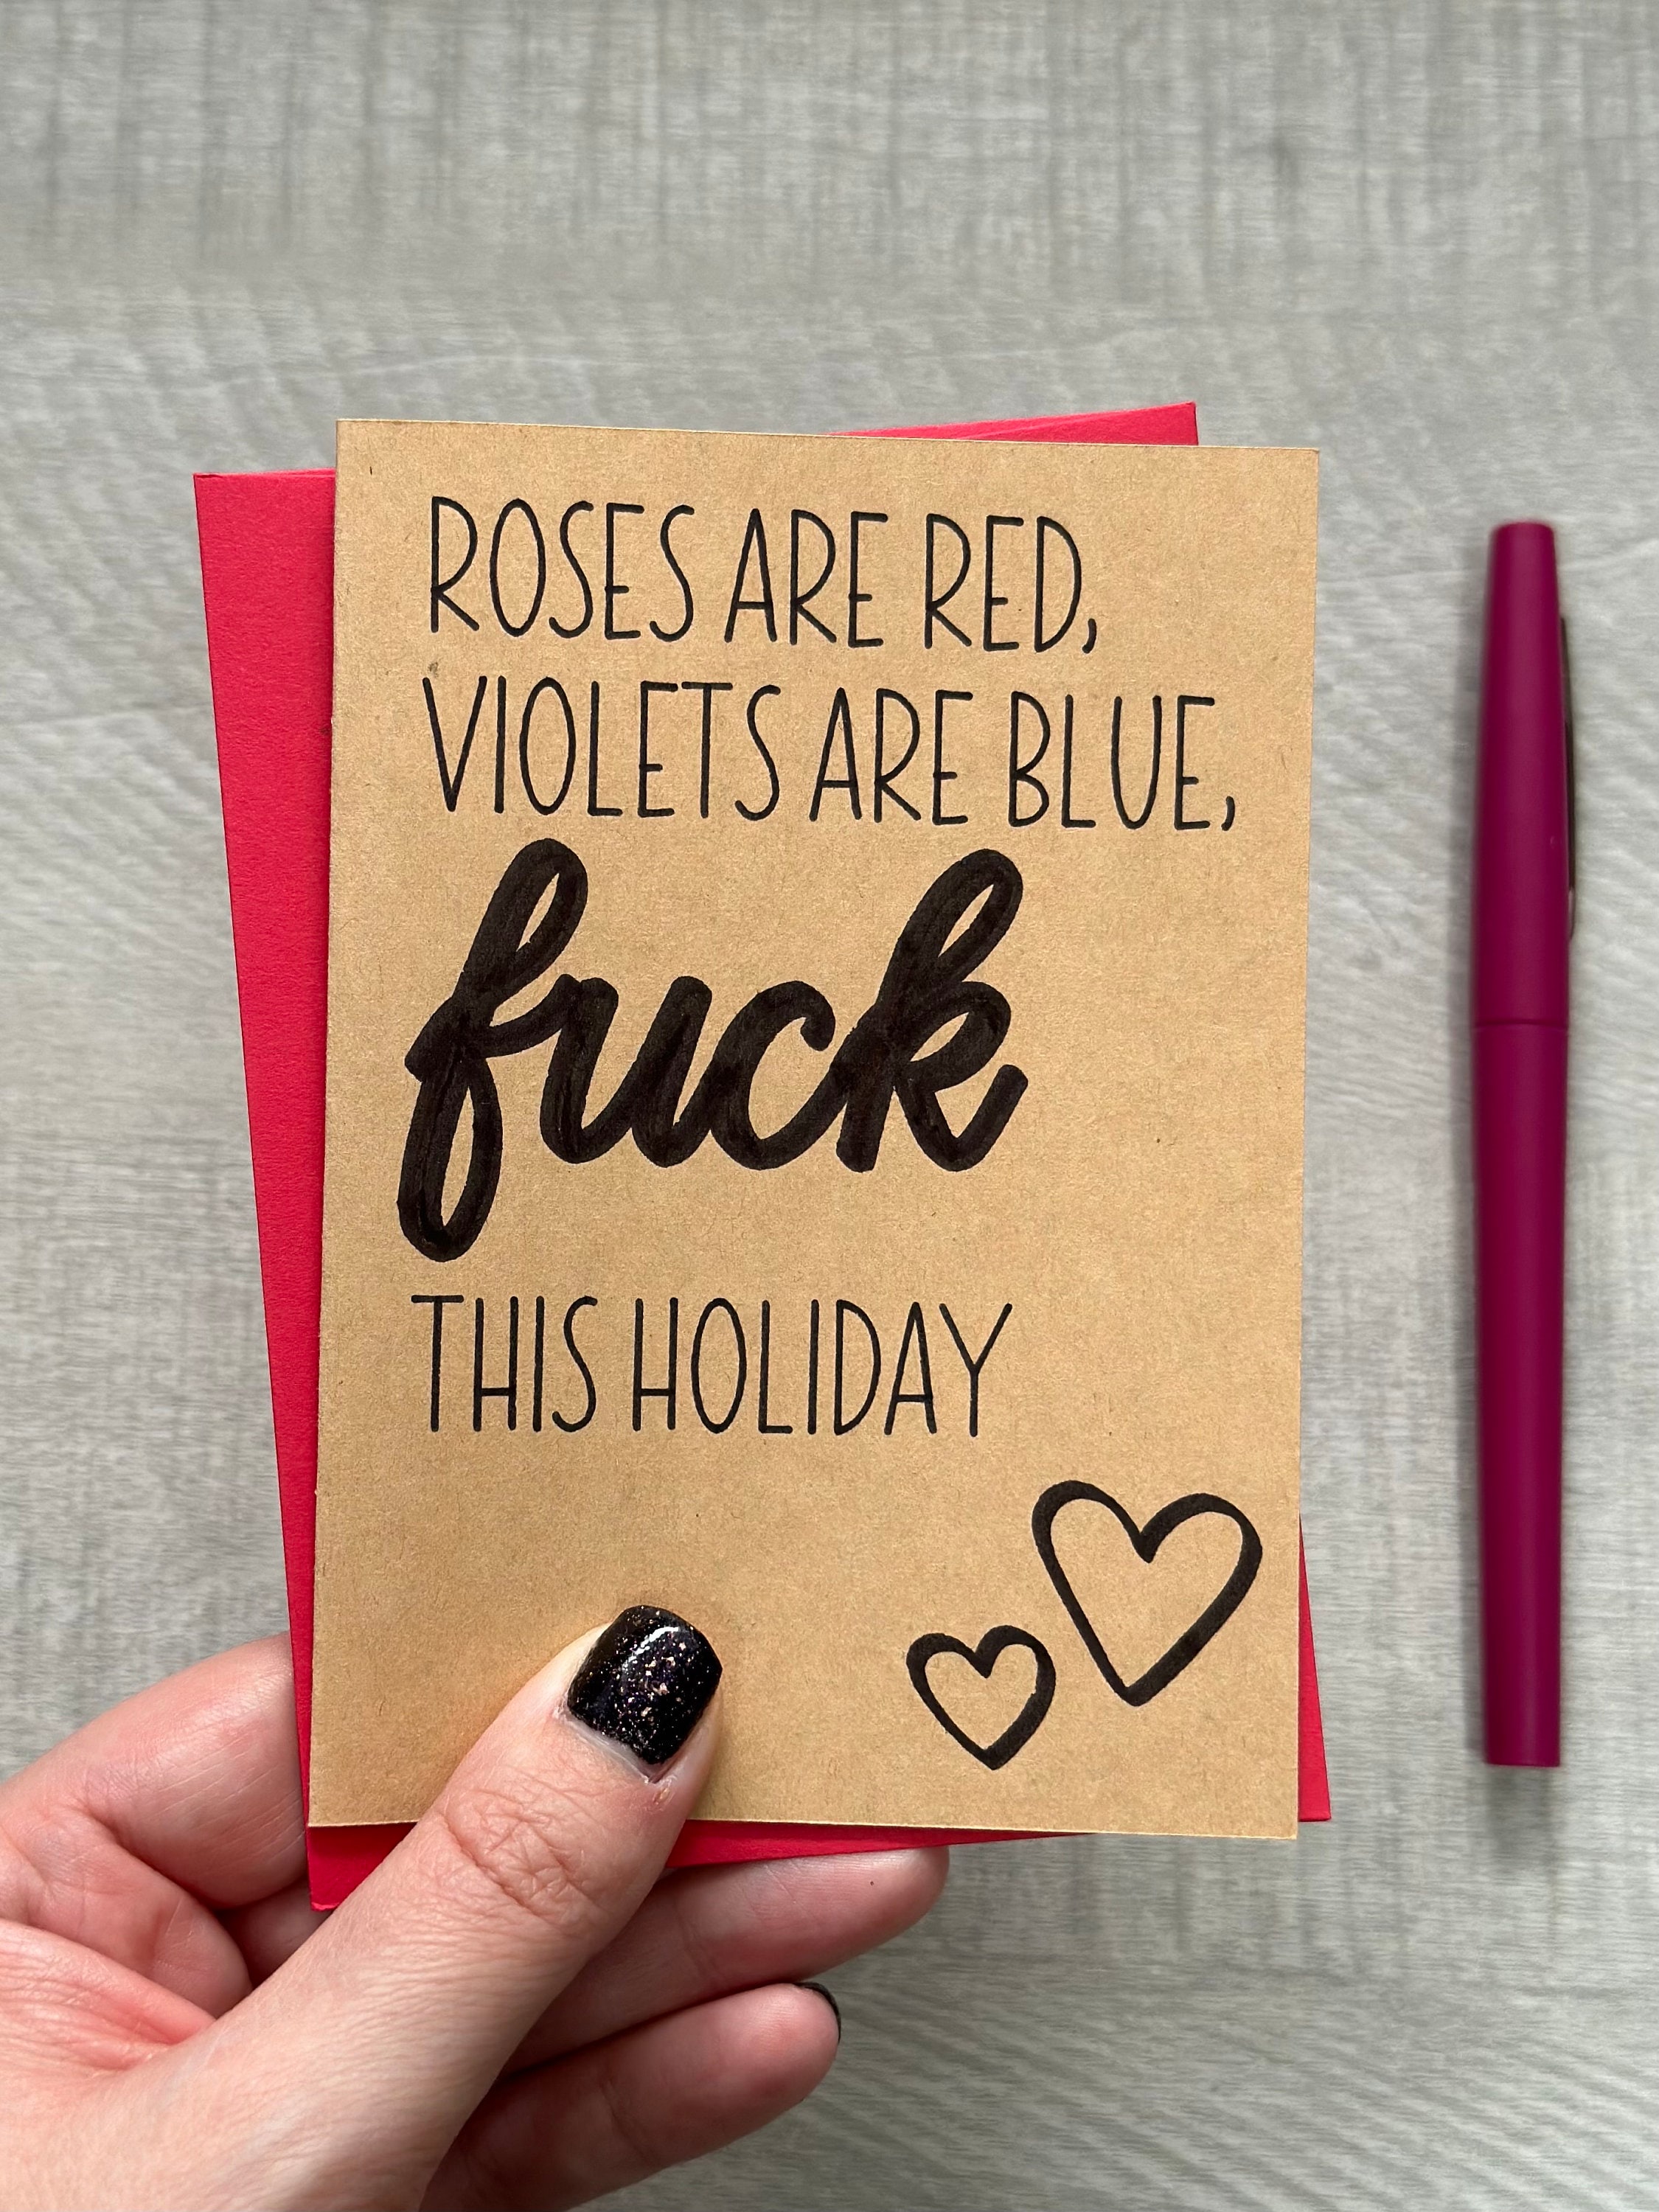 ROSES ARE RED,
VIOLETS ARE BLUE,
fuck
THIS HOLIDAY